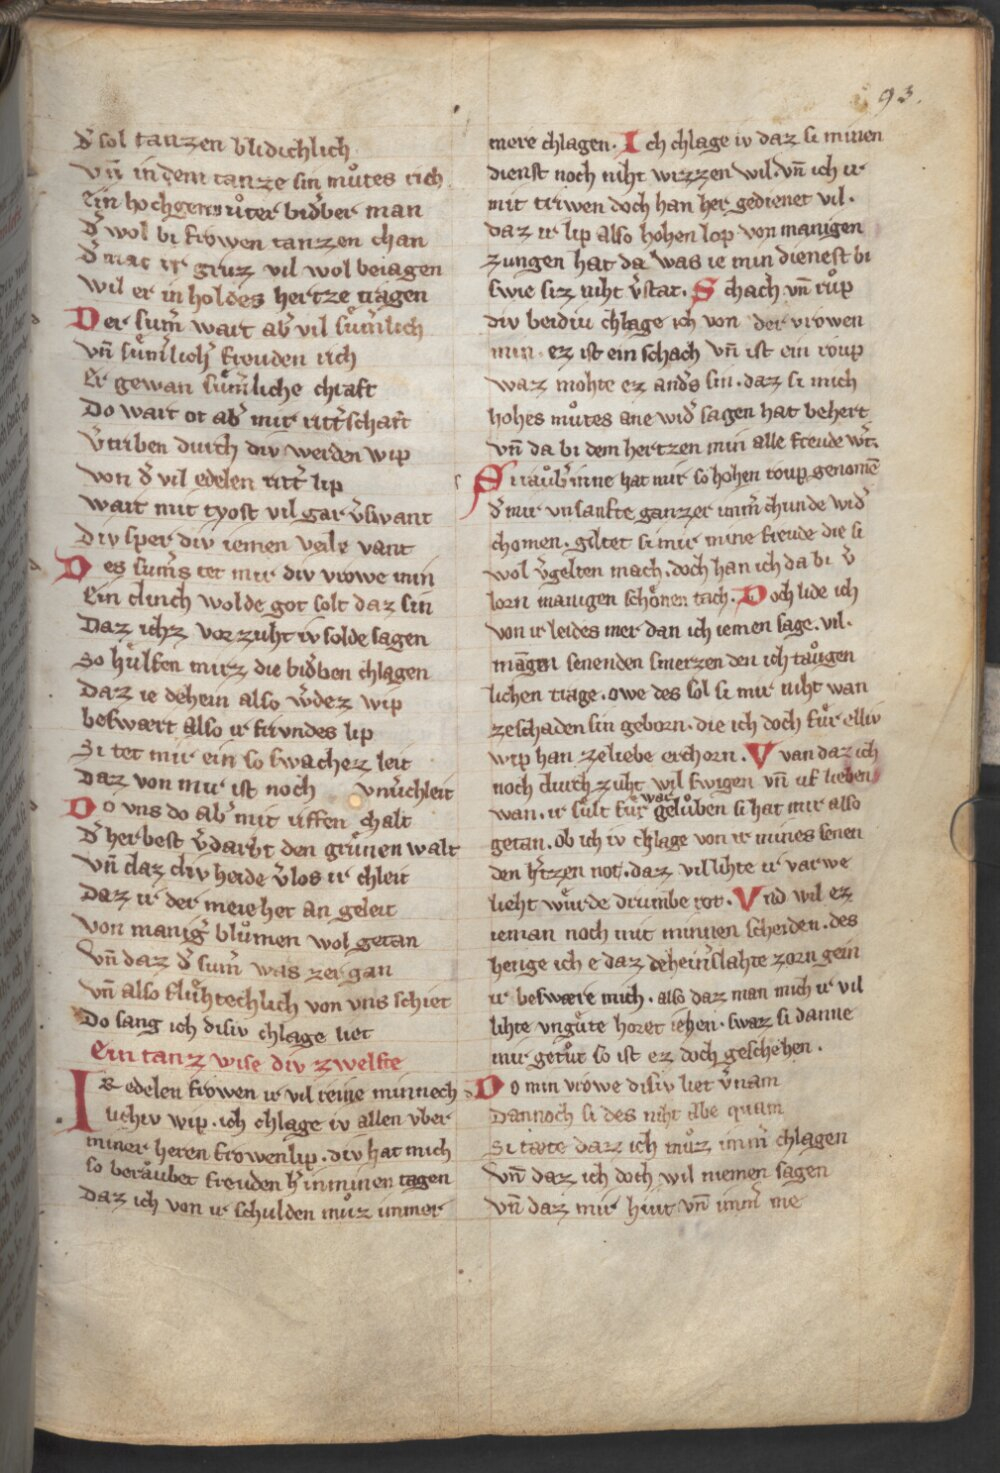 93.
d͛ sol tanzen blidichlich
Vn̄ in dem tanze sin mvͦtes rich
Ein hochgemvͦter bid͛ber man
d͛ wol bi frowen tanzen chan
d͛ mac ir grvz vil wol beiagen
Wil er in holdes hertze tragen
Der sum͛ wart ab͛ vil sum͛lich
Vn̄ sum͛lich͛ freuden rich
Er gewan sum͛liche chraft
Do wart ot ab͛ mit ritt͛schaft
v͛triben durch div werden wip
Von d͛ vil edelen ritt͛ lip
Wart mit tyost vil gar v͛swant
Div sper div iemen veile vant
Des sum͛s tet mir div vrowe min
Ein dinch wolde got solt daz sin
Daz ichz vor zuht iv solde sagen
So hulfen mirz die bid͛ben chlagen
Daz ie dehein also w͛dez wip
beswært also ir frvndes lip
Si tet mir ein so swachez leit
Daz von mir ist noch vnuͦrchleit
Do vns do ab͛ mit riffen chalt
d͛ herbest v͛darbt den grünen walt
Vn̄ daz div heide v͛los ir chleit
Daz ir der meie het an geleit
Von manig͛ blvͦmen wol getan
Vn̄ daz d͛ sum͛ was zergan
Vn̄ also fluhtechlich von vns schiet
Do sang ich disiv chlage liet
Ein tanz wise div zwelfte
IR edelen frowen ir vil reine minnech
lichiv wip . ich chlage iv allen vber
miner heren frowen lip . div hat mich
so beraubet freuden h͛ in minen tagen
Daz ich von ir schulden mvͦz immer
mere chlagen . Ich chlage iv daz si minen
dienst noch niht wizzen wil . vn̄ ich ir
mit triwen doch han her gedienet vil .
daz ir lip also hohen lop von manigen
zungen hat da was ie min dienest bi
swie siz niht v͛stat . Schach vn̄ rvͦp
div beidiv chlage ich von der vrowen
min . ez ist ein schach vn̄ ist ein roup
waz mohte ez and͛s sin . daz si mich
hohes mvͦtes ane wid͛ sagen hat behert
vn̄ da bi dem hertzen min alle freude w͛t .
Si raub͛inne hat mir so hohen roup genomē
d͛ mir vnsanfte ganzer imm͛ chunde wid͛
chomen . giltet si mir mine freude die si
wol v͛gelten mach . doch han ich da bi v͛
lorn manigen schönen tach . Doch lide ich
von ir leides mer dan ich iemen sage . vil .
māgen senenden smerzen den ich taugen
lichen trage . owe des sol si mir niht wan
ze schaden sin geborn . die ich doch für elliv
wip han ze liebe erchorn . Vvan daz ich
noch durch zuht wil swigen vn̄ uf lieben
wan . ir sult für war gelauben si hat mir also
getan . ob ich iv chlage von ir mines senen
den h͛tzen not . daz vil lihte ir varwe
lieht würde drumbe rot . Vnd wil ez
ieman noch mit minnen scheiden . des
henge ich e daz deheinr͛slahte zorn gein
ir beswære mich . also daz man mich ir vil
lihte vngute horet iehen . swaz si danne
mir getuͦt so ist ez doch geschehen .
Do min vrowe disiv liet v͛nam
Dannoch si des niht abe quam
Si tæte daz ich mvͦz imm͛ chlagen
Vn̄ daz ich doch wil niemen sagen
Vn̄ daz mir hiut vn̄ imm͛ me